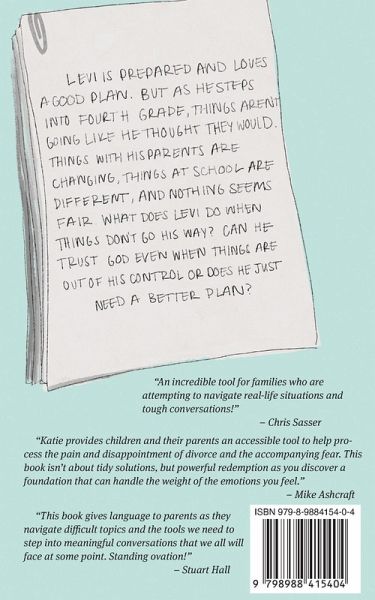 LEVI IS PREPARED AND LOVES
A GOOD PLAN. BUT AS HE STEPS
INTO FOURTH GRADE, THINGS AREN'T
GOING LIKE HE THOUGHT THEY WOULD.
THINGS WITH HIS PARENTS ARE
CHANGING, THINGS AT SCHOOL ARE
DIFFERENT, AND NOTHING SEEMS
FAIR. WHAT DOES LEVI DO WHEN
THINGS DON'T GO HIS WAY? CAN HE
TRUST GOD EVEN WHEN THINGS ARE
OUT OF HIS CONTROL OR DOES HE JUST
NEED A BETTER PLAN?
"An incredible tool for families who are
attempting to navigate real-life situations and
tough conversations!"
– Chris Sasser
"Katie provides children and their parents an accessible tool to help pro-
cess the pain and disappointment of divorce and the accompanying fear. This
book isn't about tidy solutions, but powerful redemption as you discover a
foundation that can handle the weight of the emotions you feel."
– Mike Ashcraft
"This book gives language to parents as they
navigate difficult topics and the tools we need to
step into meaningful conversations that we all will
face at some point. Standing ovation!"
– Stuart Hall
ISBN 979-8-9884154-0-4
9 798988 415404